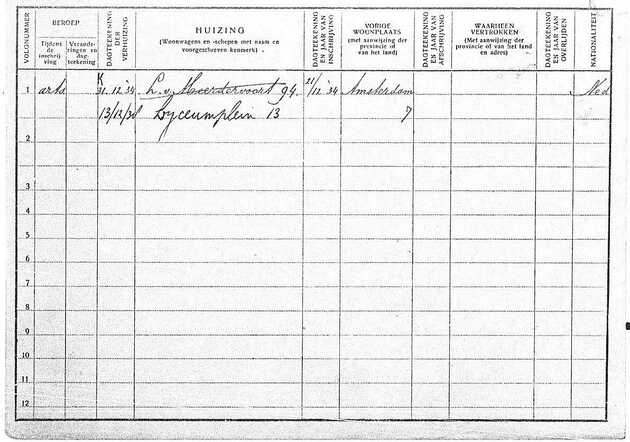 VOLGNUMMER
BEROEP
Tijdens de inschrijving
Veranderingen en dagteekening
DAGTEEKENING DER VERHUIZING
HUIZING
(Woonwagens en -schepen met naam en voorgeschreven kenmerk) .
DAGTEEKENING EN JAAR VAN INSCHRIJVING
VORIGE WOONPLAATS
(met aanwijzing der provincie of van het land)
DAGTEEKENING EN JAAR VAN AFSCHRIJVING
WAARHEEN VERTROKKEN
(Met aanwijzing der provincie of van het land en adres)
DAGTEEKENING EN JAAR VAN OVERLIJDEN
NATIONALITEIT
K
1 arts 31.12.'34 L. v. Meerdervoort 94. 21/12 '34 Amsterdam Ned
13/12/38 Lyceumplein 13 7
2
3
4
5
6
7
8
9
10
11
12